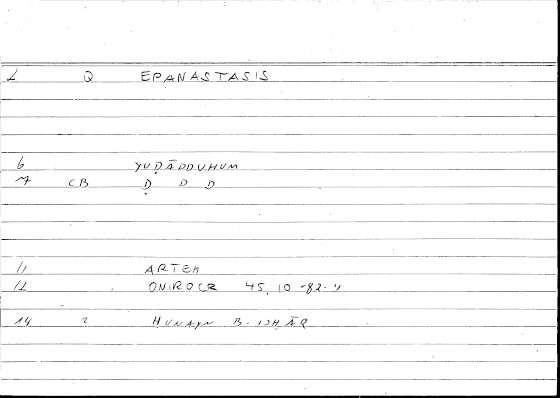 L Q EPANASTASIS
6 YUḌĀDDUHUM
7 CB Ḍ D D
11 ARTEM
12 ONIROCR 45, 10 -82.4
14 2 HUNAYN B. ISHĀQ